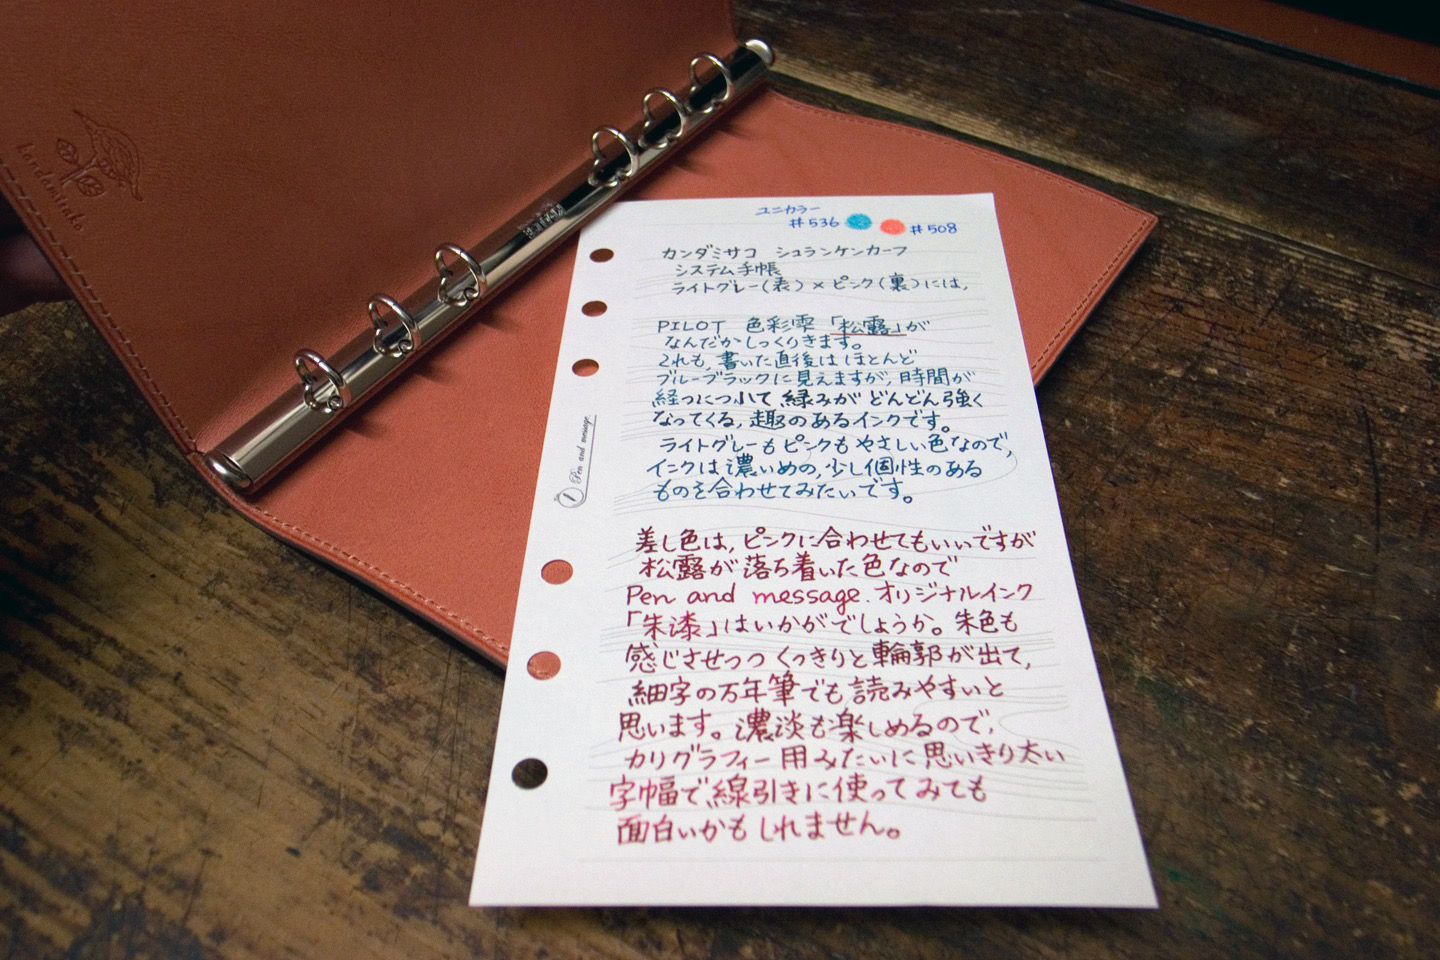 kandamisako
ユニカラー
#536 #508
カンダミサコ シュランケンカーフ
システム手帳
ライトグレー(表)×ピンク(裏)には、
PILOT 色彩雫「松露」が
なんだかしっくりきます。
これも、書いた直後はほとんど
ブルーブラックに見えますが、時間が
経つにつれて緑みがどんどん強く
なってくる、趣のあるインクです。
ライトグレーもピンクもやさしい色なので、
インクは濃いめの、少し個性のある
ものを合わせてみたいです。
Pen and message.
差し色は、ピンクに合わせてもいいですが
松露が落ち着いた色なので
Pen and message.オリジナルインク
「朱漆」はいかがでしょうか。朱色も
感じさせつつくっきりと輪郭が出て、
細字の万年筆でも読みやすいと
思います。濃淡も楽しめるので、
カリグラフィー用みたいに思いきり太い
字幅で線引きに使ってみても
面白いかもしれません。